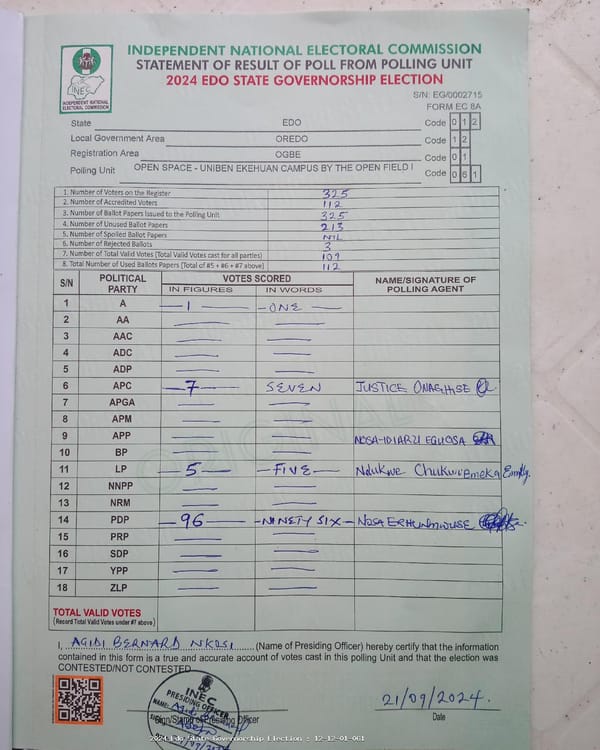 INDEPENDENT NATIONAL ELECTORAL COMMISSION
STATEMENT OF RESULT OF POLL FROM POLLING UNIT
2024 EDO STATE GOVERNORSHIP ELECTION
INEC
INDEPENDENT NATIONAL ELECTORAL COMMISSION
S/N: EG/0002715
FORM EC 8A
State EDO Code 0 1 2
Local Government Area OREDO Code 1 2
Registration Area OGBE Code 0 1
Polling Unit OPEN SPACE - UNIBEN EKEHUAN CAMPUS BY THE OPEN FIELD I Code 0 6 1
1. Number of Voters on the Register 325
2. Number of Accredited Voters 112
3. Number of Ballot Papers Issued to the Polling Unit 325
4. Number of Unused Ballot Papers 213
5. Number of Spoiled Ballot Papers NIL
6. Number of Rejected Ballots 3
7. Number of Total Valid Votes (Total Valid Votes cast for all parties) 109
8. Total Number of Used Ballots Papers (Total of #5 + #6 + #7 above) 112
S/N POLITICAL PARTY VOTES SCORED NAME/SIGNATURE OF POLLING AGENT
IN FIGURES IN WORDS
1 A 1 ONE
2 AA
3 AAC
4 ADC
5 ADP
6 APC 7 SEVEN JUSTICE ONAGHISE
7 APGA
8 APM
9 APP NOSA-IDIARU EGUOSA
10 BP
11 LP 5 FIVE Ndukwe Chukwuemeka
12 NNPP
13 NRM
14 PDP 96 NINETY SIX NOSA ERHUNMWUSE
15 PRP
16 SDP
17 YPP
18 ZLP
TOTAL VALID VOTES
(Record Total Valid Votes under #7 above)
I, AGIDI BERNARD NKOSI (Name of Presiding Officer) hereby certify that the information
contained in this form is a true and accurate account of votes cast in this polling Unit and that the election was
CONTESTED/NOT CONTESTED
INEC
PRESIDING OFFICER
NAME:
21/09/2024.
Sign/Stamp of Presiding Officer Date
2024 Edo State Governorship Election : 12-12-01-061